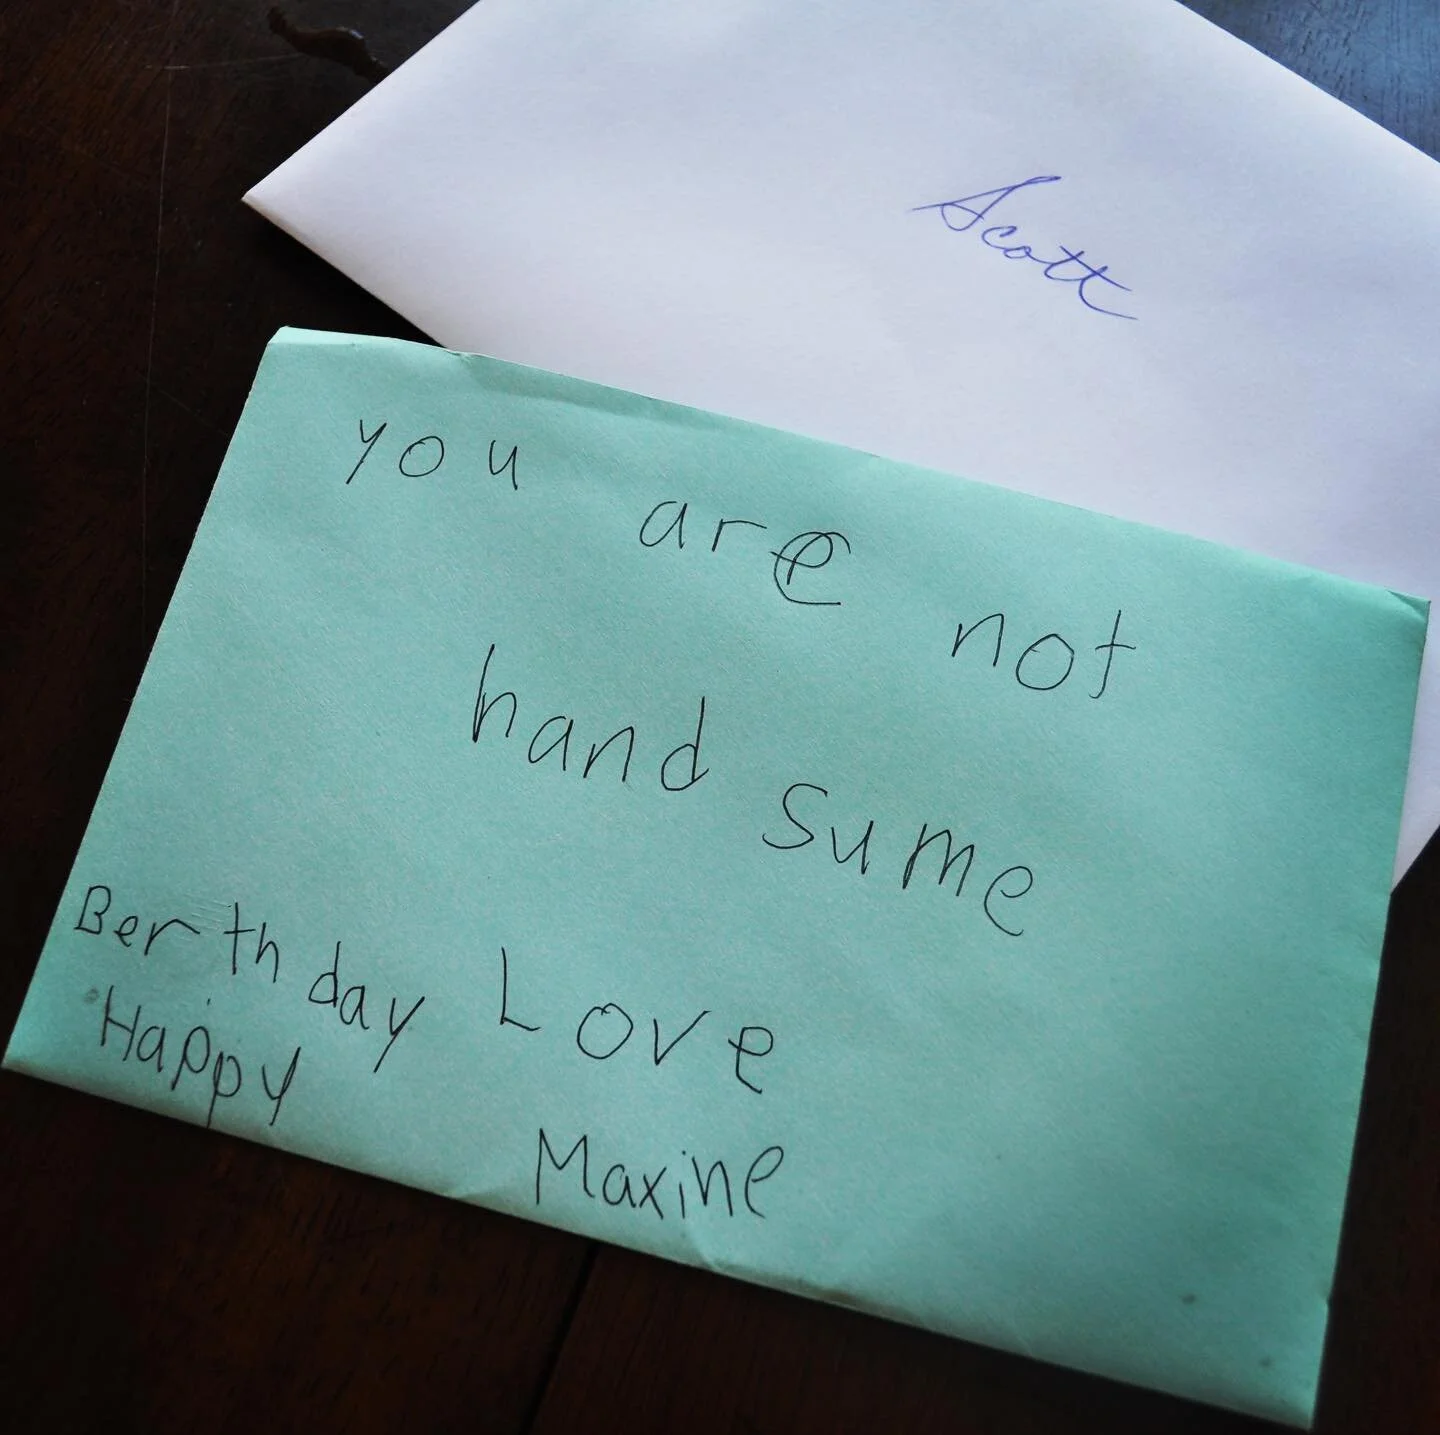 Scott
you are not
hand sume
Berth day Love
Happy
Maxine